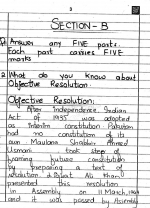 3
SECTION - B
Q Answer any FIVE parts.
Each part carries FIVE
marks
2 What do you know about
Objective Resolution.
Objective Resolution:
After Independence Indian
Act of 1935 was adopted
as Interim constitution Pakistan
had no constitution of its
own Maulana Shabbir Ahmed
Usmani took step of
framing future constitution
by preparing a test of
resolution & Liaqat Ali Khan
presented this resolution
in Assembly on 11 March, 1949
and it was passed by Assembly